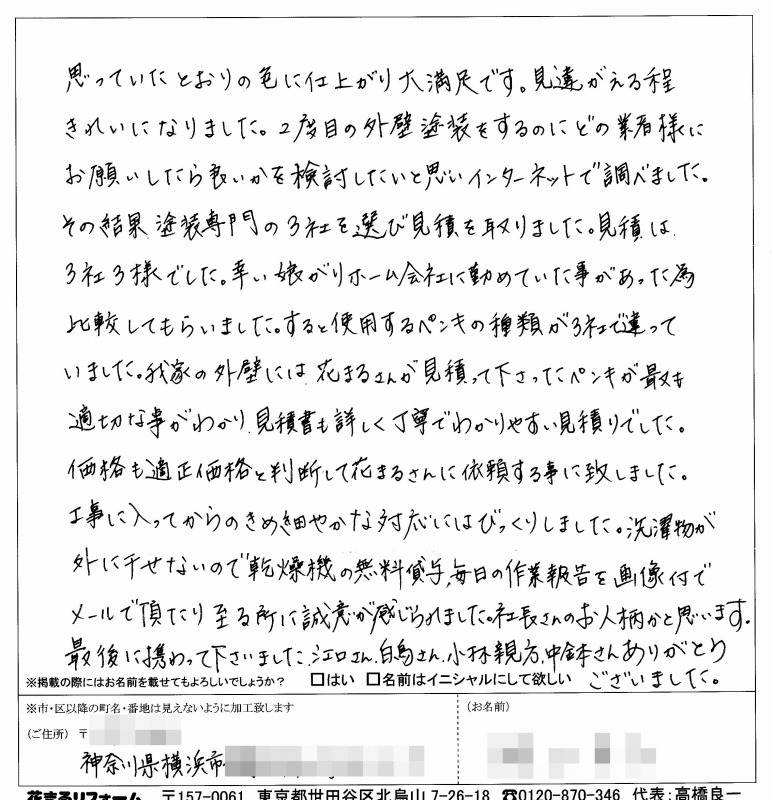 思っていたとおりの色に仕上がり大満足です。見違がえる程
きれいになりました。2度目の外壁塗装をするのにどの業者様に
お願いしたら良いかを検討したいと思いインターネットで調べました。
その結果、塗装専門の3社を選び見積を取りました。見積は、
3社3様でした。幸い娘がリホーム会社に勤めていた事があった為
比較してもらいました。すると使用するペンキの種類が3社で違って
いました。我家の外壁には、花まるさんが見積って下さったペンキが最も
適切な事がわかり、見積書も詳しく丁寧でわかりやすい見積りでした。
価格も適正価格と判断して花まるさんに依頼する事に致しました。
工事に入ってからのきめ細やかな対応にはびっくりしました。洗濯物が
外に干せないので乾燥機の無料貸与、毎日の作業報告を画像付で
メールで頂たり至る所に誠意が感じられました。社長さんのお人柄かと思います。
最後に携わって下さいました、江口さん、白鳥さん、小林親方、中鉢さんありがとう
ございました。
※掲載の際にはお名前を載せてもよろしいでしょうか? □はい □名前はイニシャルにして欲しい
※市・区以降の町名・番地は見えないように加工致します
(お名前)
(ご住所) 〒
神奈川県横浜市
花まるリフォーム 〒157-0061 東京都世田谷区北烏山7-26-18 ☎0120-870-346 代表:高橋良一